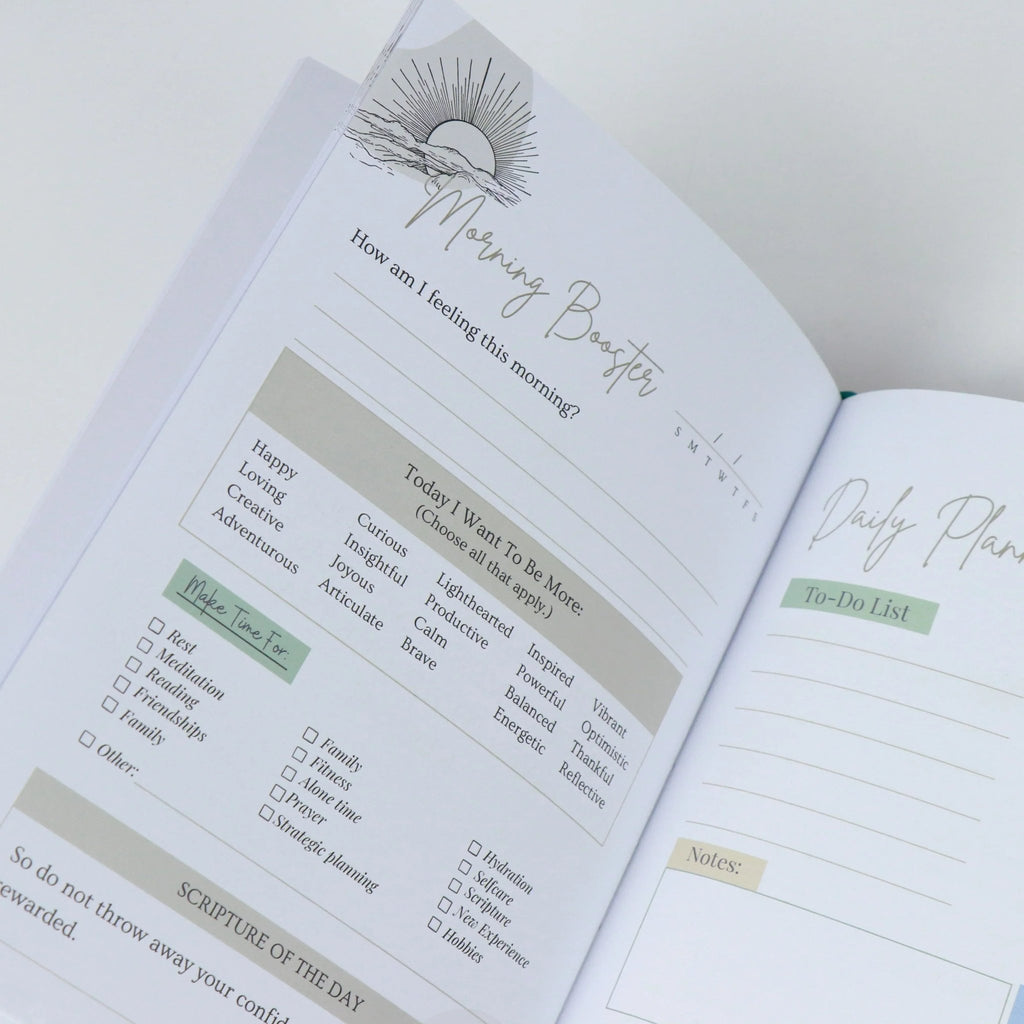 Morning Booster
How am I feeling this morning?
/ /
S M T W T F S
Today I Want To Be More:
(Choose all that apply.)
Happy
Loving
Creative
Adventurous
Curious
Insightful
Joyous
Articulate
Lighthearted
Productive
Calm
Brave
Inspired
Powerful
Balanced
Energetic
Vibrant
Optimistic
Thankful
Reflective
Make Time For:
Rest
Meditation
Reading
Friendships
Family
Other:
Family
Fitness
Alone time
Prayer
Strategic planning
Hydration
Selfcare
Scripture
New Experience
Hobbies
SCRIPTURE OF THE DAY
So do not throw away your
rewarded.
Daily
To-Do List
Notes: